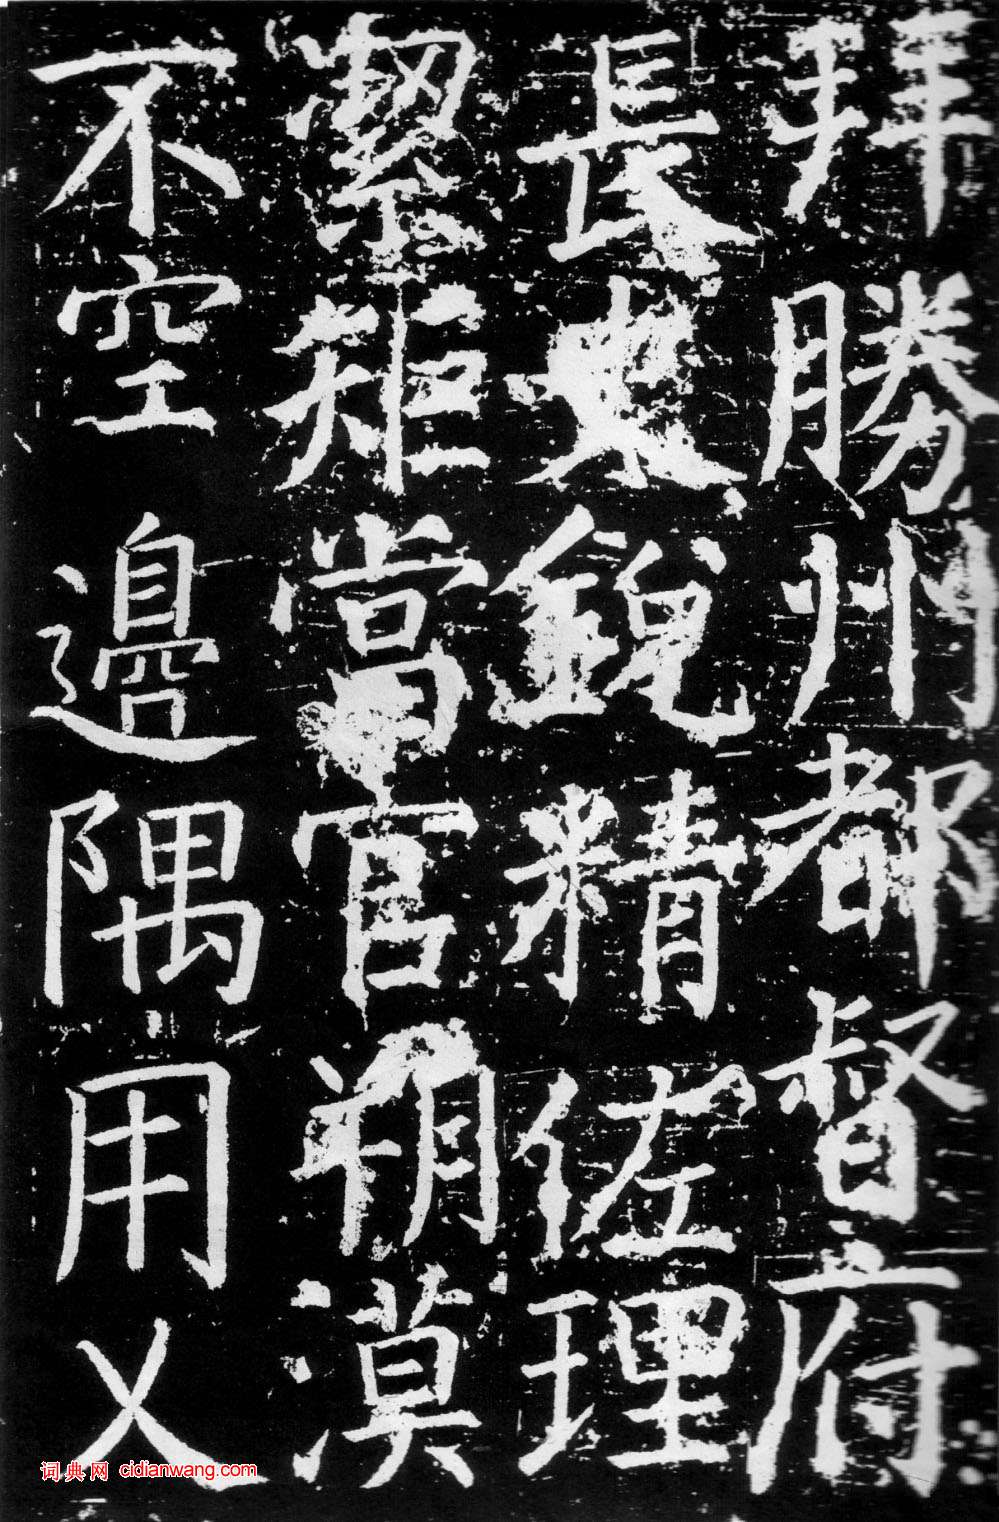 拜勝州都督府
長史銳精佐理
潔矩當官朔漠
不空邊隅用乂
词典网 cidianwang.com